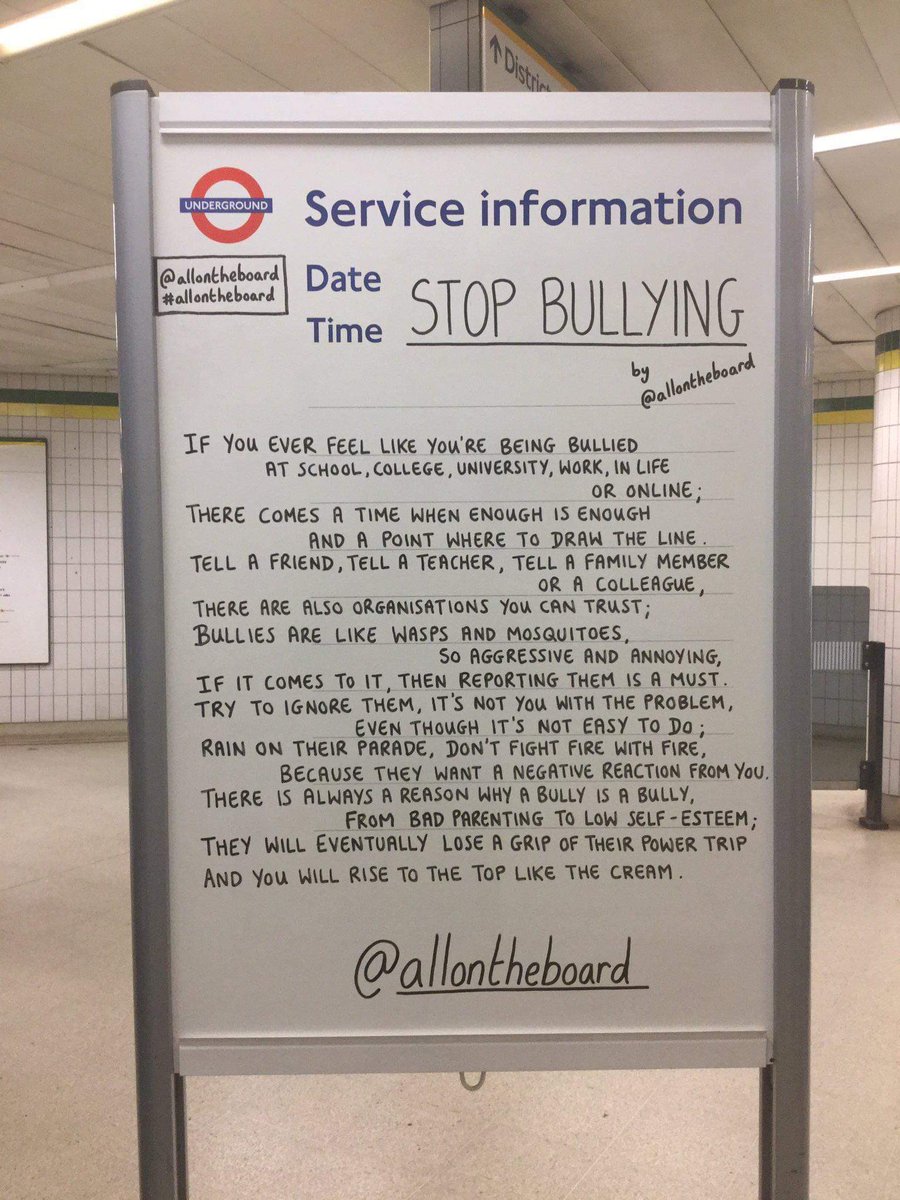 ↑ District
UNDERGROUND
Service information
@allontheboard
#allontheboard
Date
Time
STOP BULLYING
by
@allontheboard
IF YOU EVER FEEL LIKE YOU'RE BEING BULLIED
AT SCHOOL, COLLEGE, UNIVERSITY, WORK, IN LIFE
OR ONLINE;
THERE COMES A TIME WHEN ENOUGH IS ENOUGH
AND A POINT WHERE TO DRAW THE LINE.
TELL A FRIEND, TELL A TEACHER, TELL A FAMILY MEMBER
OR A COLLEAGUE,
THERE ARE ALSO ORGANISATIONS YOU CAN TRUST;
BULLIES ARE LIKE WASPS AND MOSQUITOES,
SO AGGRESSIVE AND ANNOYING,
IF IT COMES TO IT, THEN REPORTING THEM IS A MUST.
TRY TO IGNORE THEM, IT'S NOT YOU WITH THE PROBLEM,
EVEN THOUGH IT'S NOT EASY TO DO;
RAIN ON THEIR PARADE, DON'T FIGHT FIRE WITH FIRE,
BECAUSE THEY WANT A NEGATIVE REACTION FROM YOU.
THERE IS ALWAYS A REASON WHY A BULLY IS A BULLY,
FROM BAD PARENTING TO LOW SELF-ESTEEM;
THEY WILL EVENTUALLY LOSE A GRIP OF THEIR POWER TRIP
AND YOU WILL RISE TO THE TOP LIKE THE CREAM.
@allontheboard